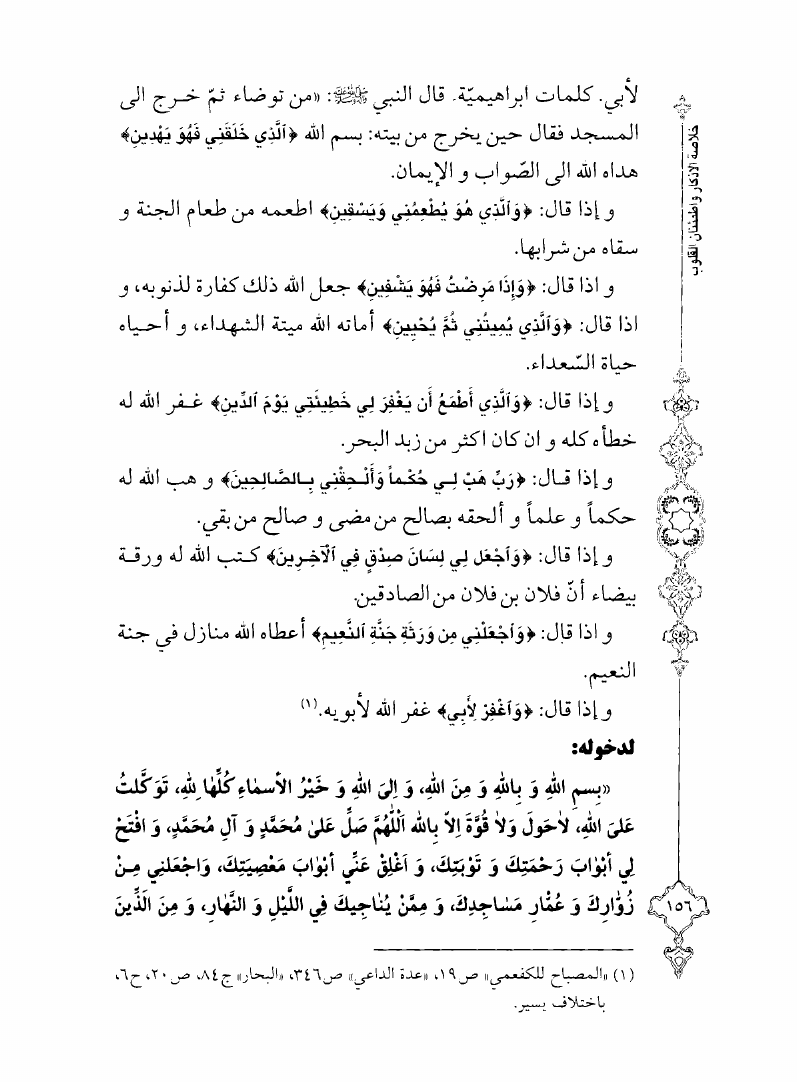 لأبي. كلمات ابراهيميّة. قال النبي ﷺ: «من توضاء ثمّ خرج الى
المسجد فقال حين يخرج من بيته: بسم الله ﴿ٱلَّذِي خَلَقَنِي فَهُوَ يَهْدِينِ﴾
هداه الله الى الصّواب و الإيمان.
و إذا قال: ﴿وَٱلَّذِي هُوَ يُطْعِمُنِي وَيَسْقِينِ﴾ اطعمه من طعام الجنة و
سقاه من شرابها.
و اذا قال: ﴿وَإِذَا مَرِضْتُ فَهُوَ يَشْفِينِ﴾ جعل الله ذلك كفارة لذنوبه، و
اذا قال: ﴿وَٱلَّذِي يُمِيتُنِي ثُمَّ يُحْيِينِ﴾ أماته الله ميتة الشهداء، و أحياه
حياة السّعداء.
و إذا قال: ﴿وَٱلَّذِي أَطْمَعُ أَن يَغْفِرَ لِي خَطِيئَتِي يَوْمَ ٱلدِّينِ﴾ غفر الله له
خطأه كله و ان كان اكثر من زبد البحر.
و إذا قال: ﴿رَبِّ هَبْ لِي حُكْماً وَأَلْحِقْنِي بِالصَّالِحِينَ﴾ و هب الله له
حكماً و علماً و ألحقه بصالح من مضى و صالح من بقي.
و إذا قال: ﴿وَٱجْعَل لِي لِسَانَ صِدْقٍ فِي ٱلْآخِرِينَ﴾ كتب الله له ورقة
بيضاء أنّ فلان بن فلان من الصادقين.
و اذا قال: ﴿وَٱجْعَلْنِي مِن وَرَثَةِ جَنَّةِ ٱلنَّعِيمِ﴾ أعطاه الله منازل في جنة
النعيم.
و إذا قال: ﴿وَٱغْفِرْ لِأَبِي﴾ غفر الله لأبويه.(١)
لدخوله:
«بِسمِ اللهِ وَ بِاللهِ وَ مِنَ اللهِ، وَ اِلىَ اللهِ وَ خَيْرُ الأسمٰاءِ كُلِّهٰا لِلهِ، تَوَكَّلتُ
عَلىَ اللهِ، لاٰحَولَ وَلاٰ قُوَّةَ اِلاّٰ بِالله اَللّٰهُمَّ صَلِّ عَلىٰ مُحَمَّدٍ وَ آلِ مُحَمَّدٍ، وَ افتَحْ
لِي أبْوٰابَ رَحْمَتِكَ وَ تَوْبَتِكَ، وَ اَغْلِقْ عَنِّي أبْوٰابَ مَعْصِيَتِكَ، وَاجْعَلنِي مِنْ
زُوّٰارِكَ وَ عُمّٰارِ مَسٰاجِدِكَ، وَ مِمَّنْ يُنٰاجِيكَ فِي اللَّيْلِ وَ النَّهٰارِ، وَ مِنَ الَّذِينَ
(١) «المصباح للكفعمي» ص ١٩، «عدة الداعي» ص ٣٤٦، «البحار» ج ٨٤، ص ٢٠، ح ٦،
باختلاف يسير.
خلاصة الاذكار واطمئنان القلوب
١٥٦